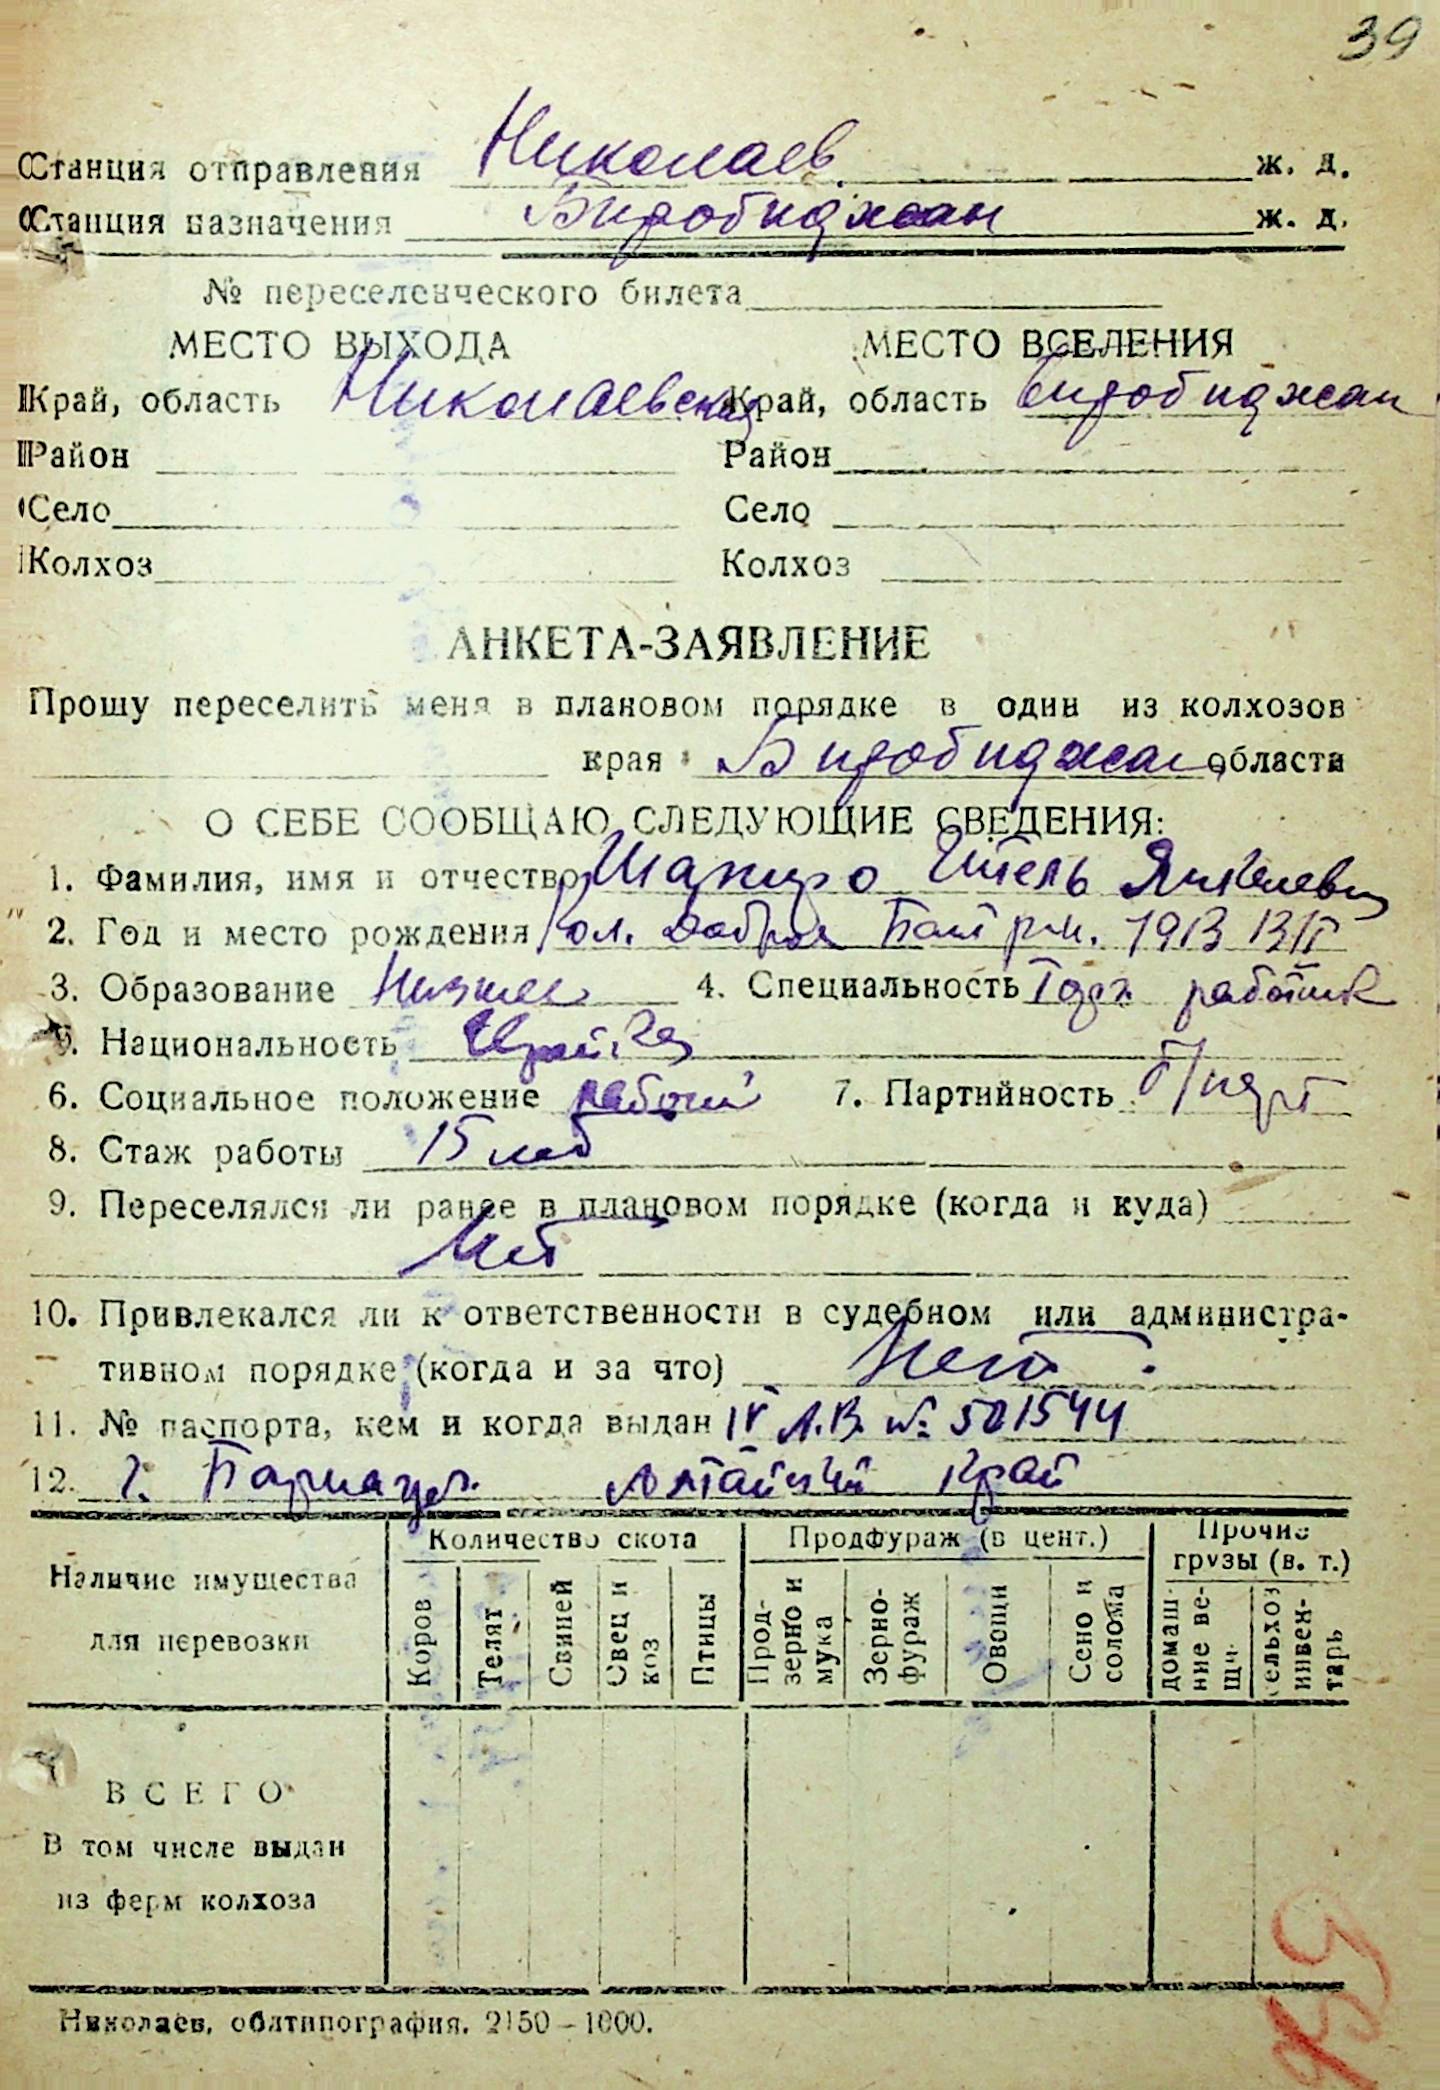 39
Станция отправления Николаев ж. д.
Станция назначения Биробиджан ж. д.
№ переселенческого билета
МЕСТО ВЫХОДА МЕСТО ВСЕЛЕНИЯ
Край, область Николаевская Край, область Биробиджан
Район Район
Село Село
Колхоз Колхоз
АНКЕТА-ЗАЯВЛЕНИЕ
Прошу переселить меня в плановом порядке в один из колхозов
края Биробиджан области
О СЕБЕ СООБЩАЮ СЛЕДУЮЩИЕ СВЕДЕНИЯ:
1. Фамилия, имя и отчество Шапиро Янкелевич
2. Год и место рождения кол. Добрая Башт р-н. 1913
3. Образование Низшее 4. Специальность работник
5. Национальность Еврей
6. Социальное положение рабочий 7. Партийность б/парт
8. Стаж работы 15 лет
9. Переселялся ли ранее в плановом порядке (когда и куда)
Нет
10. Привлекался ли к ответственности в судебном или администра-
тивном порядке (когда и за что) Нет.
11. № паспорта, кем и когда выдан IV А.В. № 501544
12. г. Барнаул. Алтайский край
Количество скота Продфураж (в цент.) Прочие грузы (в. т.)
Наличие имущества для перевозки
Коров Телят Свиней Овец и коз Птицы Прод-зерно и мука Зерно-фураж Овощи Сено и солома домаш-ние ве-щи сельхоз инвен-тарь
ВСЕГО
В том числе выдан
из ферм колхоза
Николаев, облтипография. 2150—1000.